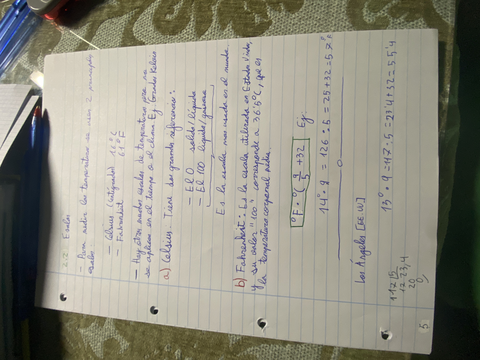 2.2. Escalas
— Para medir las temperaturas se usan 2 principales
escalas
— Celsius (Centígrados) 16ºC
— Fahrenheit 61ºF
— Hay otras medias escalas de temperatura pero no
se aplican en el tiempo o el clima Ej. Grandes Kelvin
a) Celsius Tiene dos grandes referencias:
— El 0 solido/líquido
— El 100 líquido/gaseoso
Es la escala mas usada en el mundo.
b) Fahrenheit: Es la escala utilizada en Estados Unidos,
y su valor "100" corresponde a 36.5ºC, que es
la temperatura corporal
ºF = ºC · 9/5 +32 Ej
14º · 9 = 126 : 5 = 25+32=57
Los Ángeles [EE.UU]
13º · 9 = 117 : 5 = 23.4+32 = 55.4
117 5
17 23,4
20
0
5